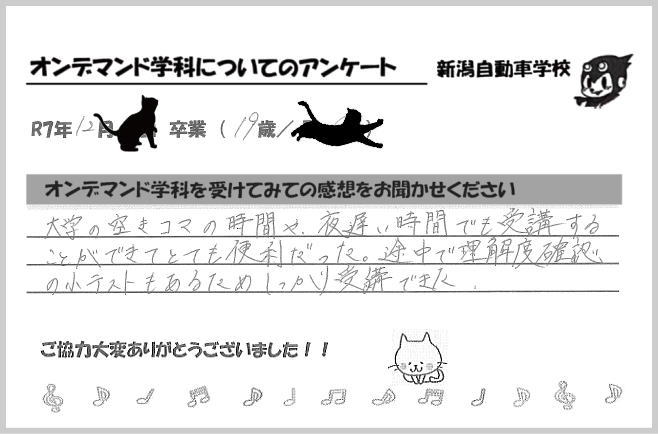 オンデマンド学科についてのアンケート 新潟自動車学校
R7年12月 卒業（19歳／
オンデマンド学科を受けてみての感想をお聞かせください
大学の空きコマの時間や、夜遅い時間でも受講する
ことができてとても便利だった。途中で理解度確認
の小テストもあるためしっかり受講できた.
ご協力大変ありがとうございました！！